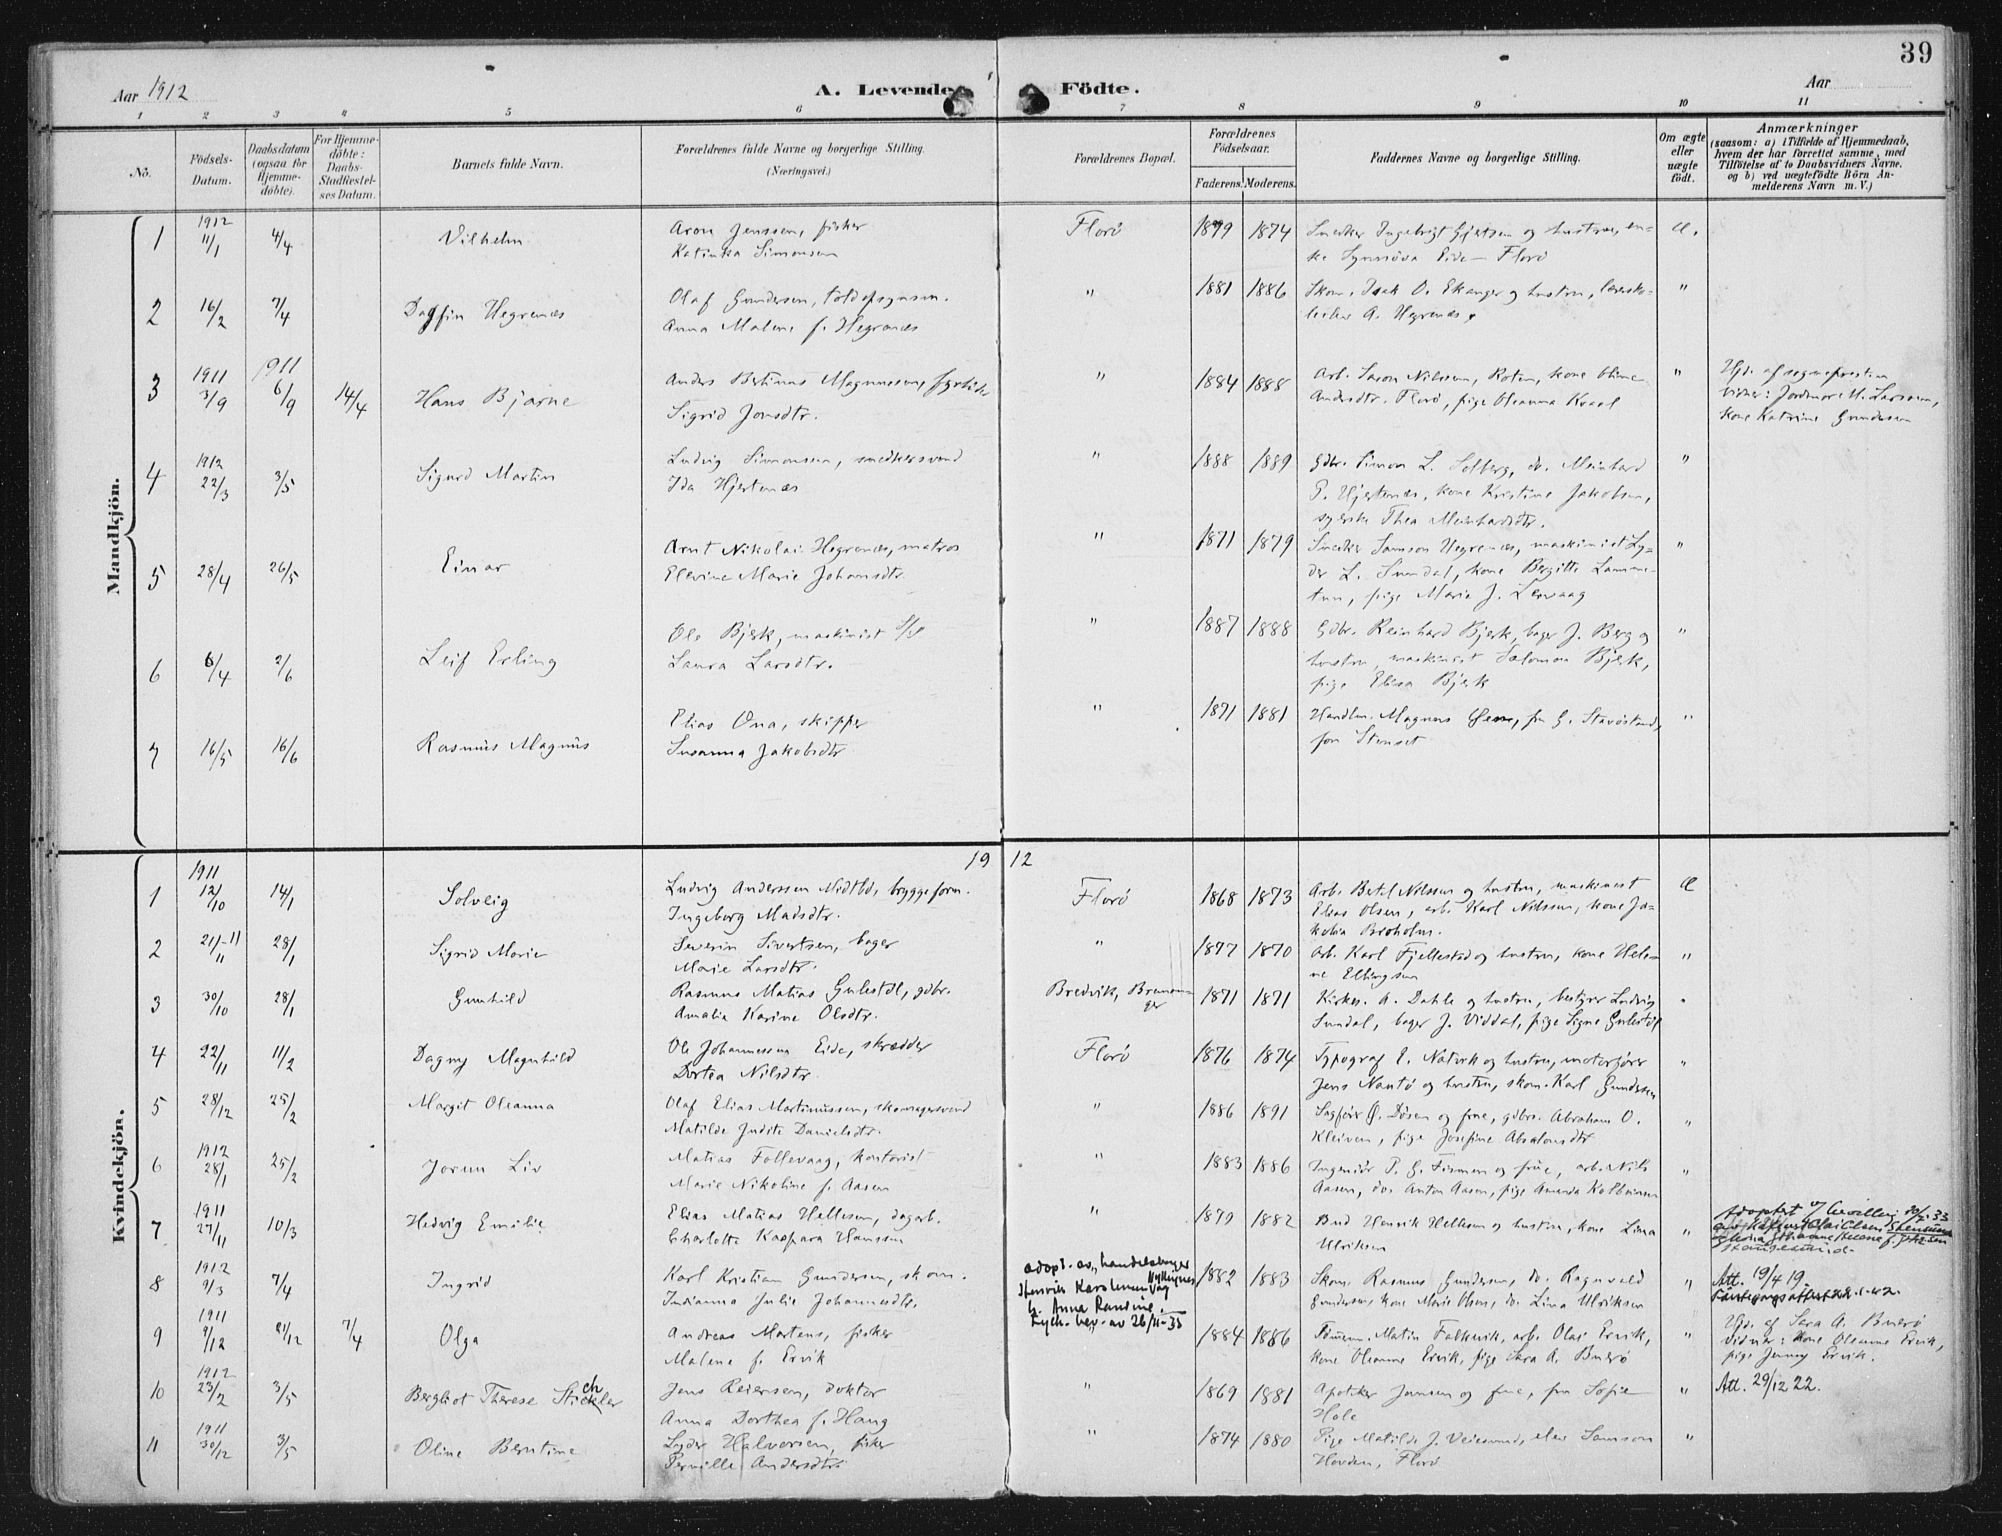 39
Aar 1912
A. Levende Födte.
Aar
1 2 3 4 5 6 7 8 9 10 11
No.
Födsels-Datum.
Daabsdatum (ogsaa for Hjemme-döbte).
For Hjemme-döbte: Daabs-Stadfestel-ses Datum.
Barnets fulde Navn.
Forældrenes fulde Navne og borgerlige Stilling. (Næringsvei.)
Forældrenes Bopæl.
Forældrenes Födselsaar.
Faderens. Moderens.
Faddernes Navne og borgerlige Stilling.
Om ægte eller uægte födt.
Anmærkninger
(saasom: a) i Tilfælde af Hjemmedaab,
hvem der har forrettet samme, med
Tilföielse af to Daabsvidners Navne.
og b) ved uægtefödte Börn An-
melderens Navn m. V.)
Mandkjön.
1 1912 11/1 4/4 Vilhelm Aron Jenssen, fisker Florö 1879 1874 Snedker Ingebrigt Gjertsen og hustru, en-
Katinka Simonsen ke Synnöva Eide - Florö
2 16/2 7/4 Dagfin Hegrenæs Olaf Gundersen, toldopsynsm. " 1881 1886 Skom. Isak O. Ekanger og hustru, "
Anna Malene f. Hegrenæs A. Hegrenæs
3 1911 3/9 1911 6/9 14/4 Hans Bjarne Anders Bertinus Magnussen, " 1884 1888 Arb. Nilssen, kone "
Sigrid Jonsdtr. Andersdtr. Florö, pige Oleanna
Hjd. af sognepresten
vidner: Jordmor M. Larssen,
kone Katrine Gundersen
4 1912 22/3 3/5 Sigurd Martin Ludvig Simonssen, snedkersvend " 1888 1889 Gdbr. Simon L. Solberg, do. Meinhard "
Ida Hjertenæs P. Hjertenæs, kone Kristine Jakobsen,
syerske Thea Meinhardsdtr.
5 28/4 26/5 Einar Arnt Nikolai Hegrenæs, matros " 1871 1879 Snedker Samson Hegrenæs, maskinist Ly- "
Elevine Marie Johansdtr. der L. Sundal, kone Bergitte Lamme-
tun, pige Marie J. Lervaag
6 6/4 2/6 Leif Erling Ole Bjerk, maskinist " 1887 1888 Gdbr. Reinhard Bjerk, bager J. Berg og "
Laura Larsdtr. hustru, maskinist Salomon Bjerk,
pige Elisa Bjerk
7 16/5 16/6 Rasmus Magnus Elias Ona, skipper " 1871 1881 Handlm. Magnus "
Susanna Jakobsdtr
19 12
Kvindekjön.
1 1911 12/10 14/1 Solveig Ludvig Anderssen bryggeform. Florö 1868 1873 Arb. Bertel Nilssen og hustru, maskinist Æ
Ingeborg Madsdtr. Elias Olsen, arb. Karl Nilssen, kone Ja-
kobia Broholm.
2 21/11-11 28/1 Sigrid Marie Severin Sivertsen, bager " 1877 1870 Arb. Karl Fjellestad og hustru, kone Hele- "
Marie Larsdtr. ne
3 30/10 28/1 Gunhild Rasmus Matias Gulestöl, gdbr. Bredvik, Bremanger 1871 1871 Kirkes. A. Dahle og hustru, bestyrer Ludvig "
Amalie Karine Olsdtr. Sundal, bager J. Viddal, pige Signe Gulestöl
4 22/11 11/2 Dagny Magnhild Ole Johannessen Eide, skrædder Florö 1876 1874 Typograf E. Natvik og hustru, motorförer "
Dortea Nilsdtr. Jens Nautö og hustru, skom. Karl Gundersen
5 28/12 25/2 Margit Oleanna Olaf Elias Martinussen, skomagersvend " 1886 1891 Sagförer Ö. Dösen og frue, gdbr. Abraham O. "
Matilde Judite Danielsdtr. Kleiven, pige Josefine Absalonsdtr
6 1912 28/1 25/2 Jorun Liv Matias Follevaag, kontorist " 1883 1886 Ingeniör P. G. og frue, arb. Nils "
Marie Nikoline f. Aasen Aasen, do. Anton Aasen, pige Amanda
7 1911 27/11 10/3 Hedvig Emilie Elias Matias Hellesen, dagarb. " 1879 1882 Bud Henrik Hellesen og hustru, kone Lina "
Charlotte Kaspara Hanssen Ulriksen
Adoptert v/ bevilling
8 1912 9/3 7/4 Ingrid Karl Kristian Gundersen, skom. 1882 1883 Skom. Rasmus Gundersen, do. Ragnvald "
Indianna Julie Johannesdtr. Gundersen, kone Marie Olsen, do. Lina Ulriksen
adopt. av handelsborger
h. Anna Ransine.
bev. av 26/11-35
Att. 19/4 19.
9 1911 9/12 7/4 Olga Andreas Martens, fisker 1884 1886 Matin Falkevik, arb. Olai Ervik, "
Malene f. Ervik kone Oleanne Ervik, pige Sara A. Buerö
Hjd. af Sara A. Buerö
vidner: kone Oleanne Ervik,
pige Jenny Ervik.
10 1912 23/2 3/5 Bergliot Therese Stickler ch Jens Reiersen, doktor " 1869 1881 Apoteker Jansen og frue, frk Sofie "
Anna Dorthea f. Haug Hole
Att. 29/12 22.
11 1911 30/12 3/5 Oline Berntine Lyder Halvorsen, fisker " 1874 1880 Pige Matilde J. elev Samson "
Pernille Andersdtr. Hovden, Florö